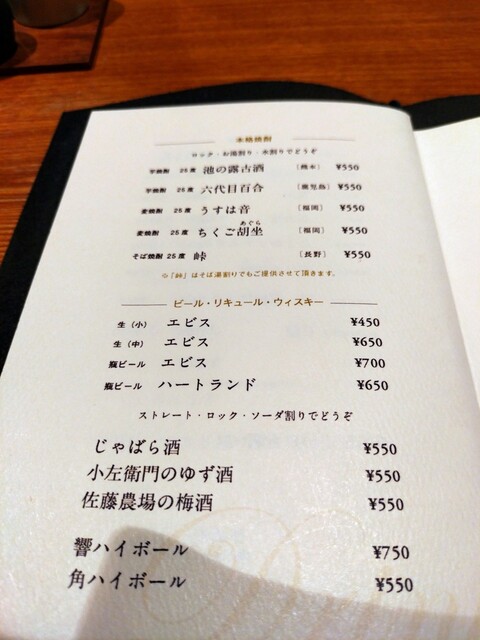 本格焼酎
ロック・お湯割り・水割りでどうぞ
芋焼酎 25度 池の露古酒 〔熊本〕 ¥550
芋焼酎 25度 六代目百合 〔鹿児島〕 ¥550
麦焼酎 25度 うすは音 〔福岡〕 ¥550
あぐら
麦焼酎 25度 ちくご胡坐 〔福岡〕 ¥550
そば焼酎 25度 峠 〔長野〕 ¥550
※「峠」はそば湯割りでもご提供させて頂きます。
ビール・リキュール・ウィスキー
生(小) エビス ¥450
生(中) エビス ¥650
瓶ビール エビス ¥700
瓶ビール ハートランド ¥650
ストレート・ロック・ソーダ割りでどうぞ
じゃばら酒 ¥550
小左衛門のゆず酒 ¥550
佐藤農場の梅酒 ¥550
響ハイボール ¥750
角ハイボール ¥550